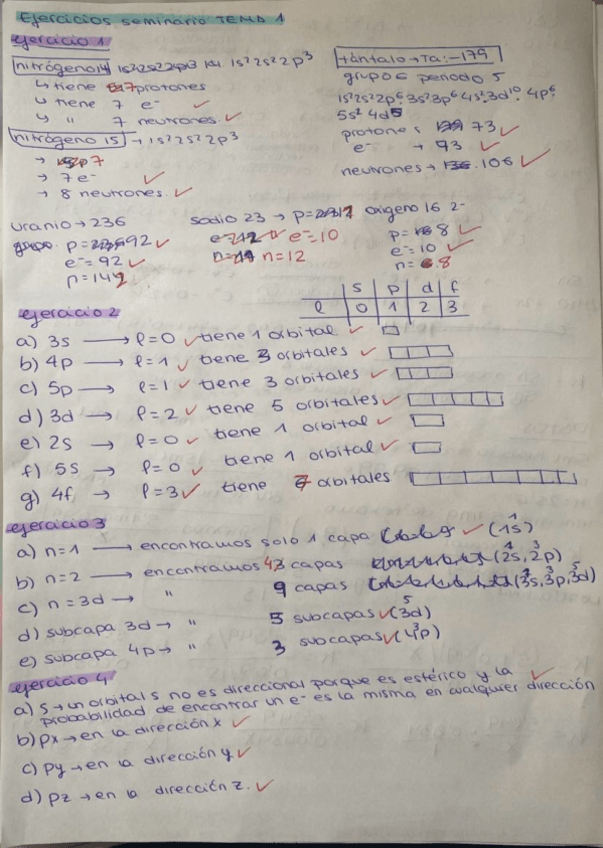 Ejercicios seminario TEMA 1
ejercicio 1
nitrógeno 14 1s²2s²2p³ 1s²2s²2p³
↳ tiene 7 protones
↳ tiene 7 e⁻ ✓
↳ " 7 neutrones. ✓
nitrógeno 15 → 1s²2s²2p³
→ p7
→ 7e⁻ ✓
→ 8 neutrones. ✓
tántalo → Ta: -179
grupo 6 periodo 5
1s²2s²2p⁶3s²3p⁶4s²3d¹⁰4p⁶
5s²4d⁵
protones 73 ✓
e⁻ → 73 ✓
neutrones → 106 ✓
uranio → 236
p= 92 ✓
e⁻= 92 ✓
n= 144
sodio 23 → p= 11
e⁻=10
n=12
oxígeno 16 2-
p= 8 ✓
e⁻=10 ✓
n= 8
s p d f
l 0 1 2 3
ejercicio 2
a) 3s → l=0 ✓ tiene 1 orbital ✓
b) 4p → l=1 ✓ tiene 3 orbitales ✓
c) 5p → l=1 ✓ tiene 3 orbitales ✓
d) 3d → l=2 ✓ tiene 5 orbitales ✓
e) 2s → l=0 ✓ tiene 1 orbital ✓
f) 5s → l=0 ✓ tiene 1 orbital ✓
g) 4f → l=3 ✓ tiene 7 orbitales
ejercicio 3
a) n=1 → encontramos solo 1 capa ✓ (1s) 1
b) n=2 → encontramos 4 capas (2s, 2p) 1 3
c) n=3d → " 9 capas (3s, 3p, 3d) 1 3 5
d) subcapa 3d → " 5 subcapas ✓ (3d) 5
e) subcapa 4p → " 3 subcapas ✓ (4p) 3
ejercicio 4
a) s → un orbital s no es direccional porque es estérico y la ✓
probabilidad de encontrar un e⁻ es la misma en cualquier dirección
b) px → en la dirección x ✓
c) py → en la dirección y ✓
d) pz → en la dirección z. ✓